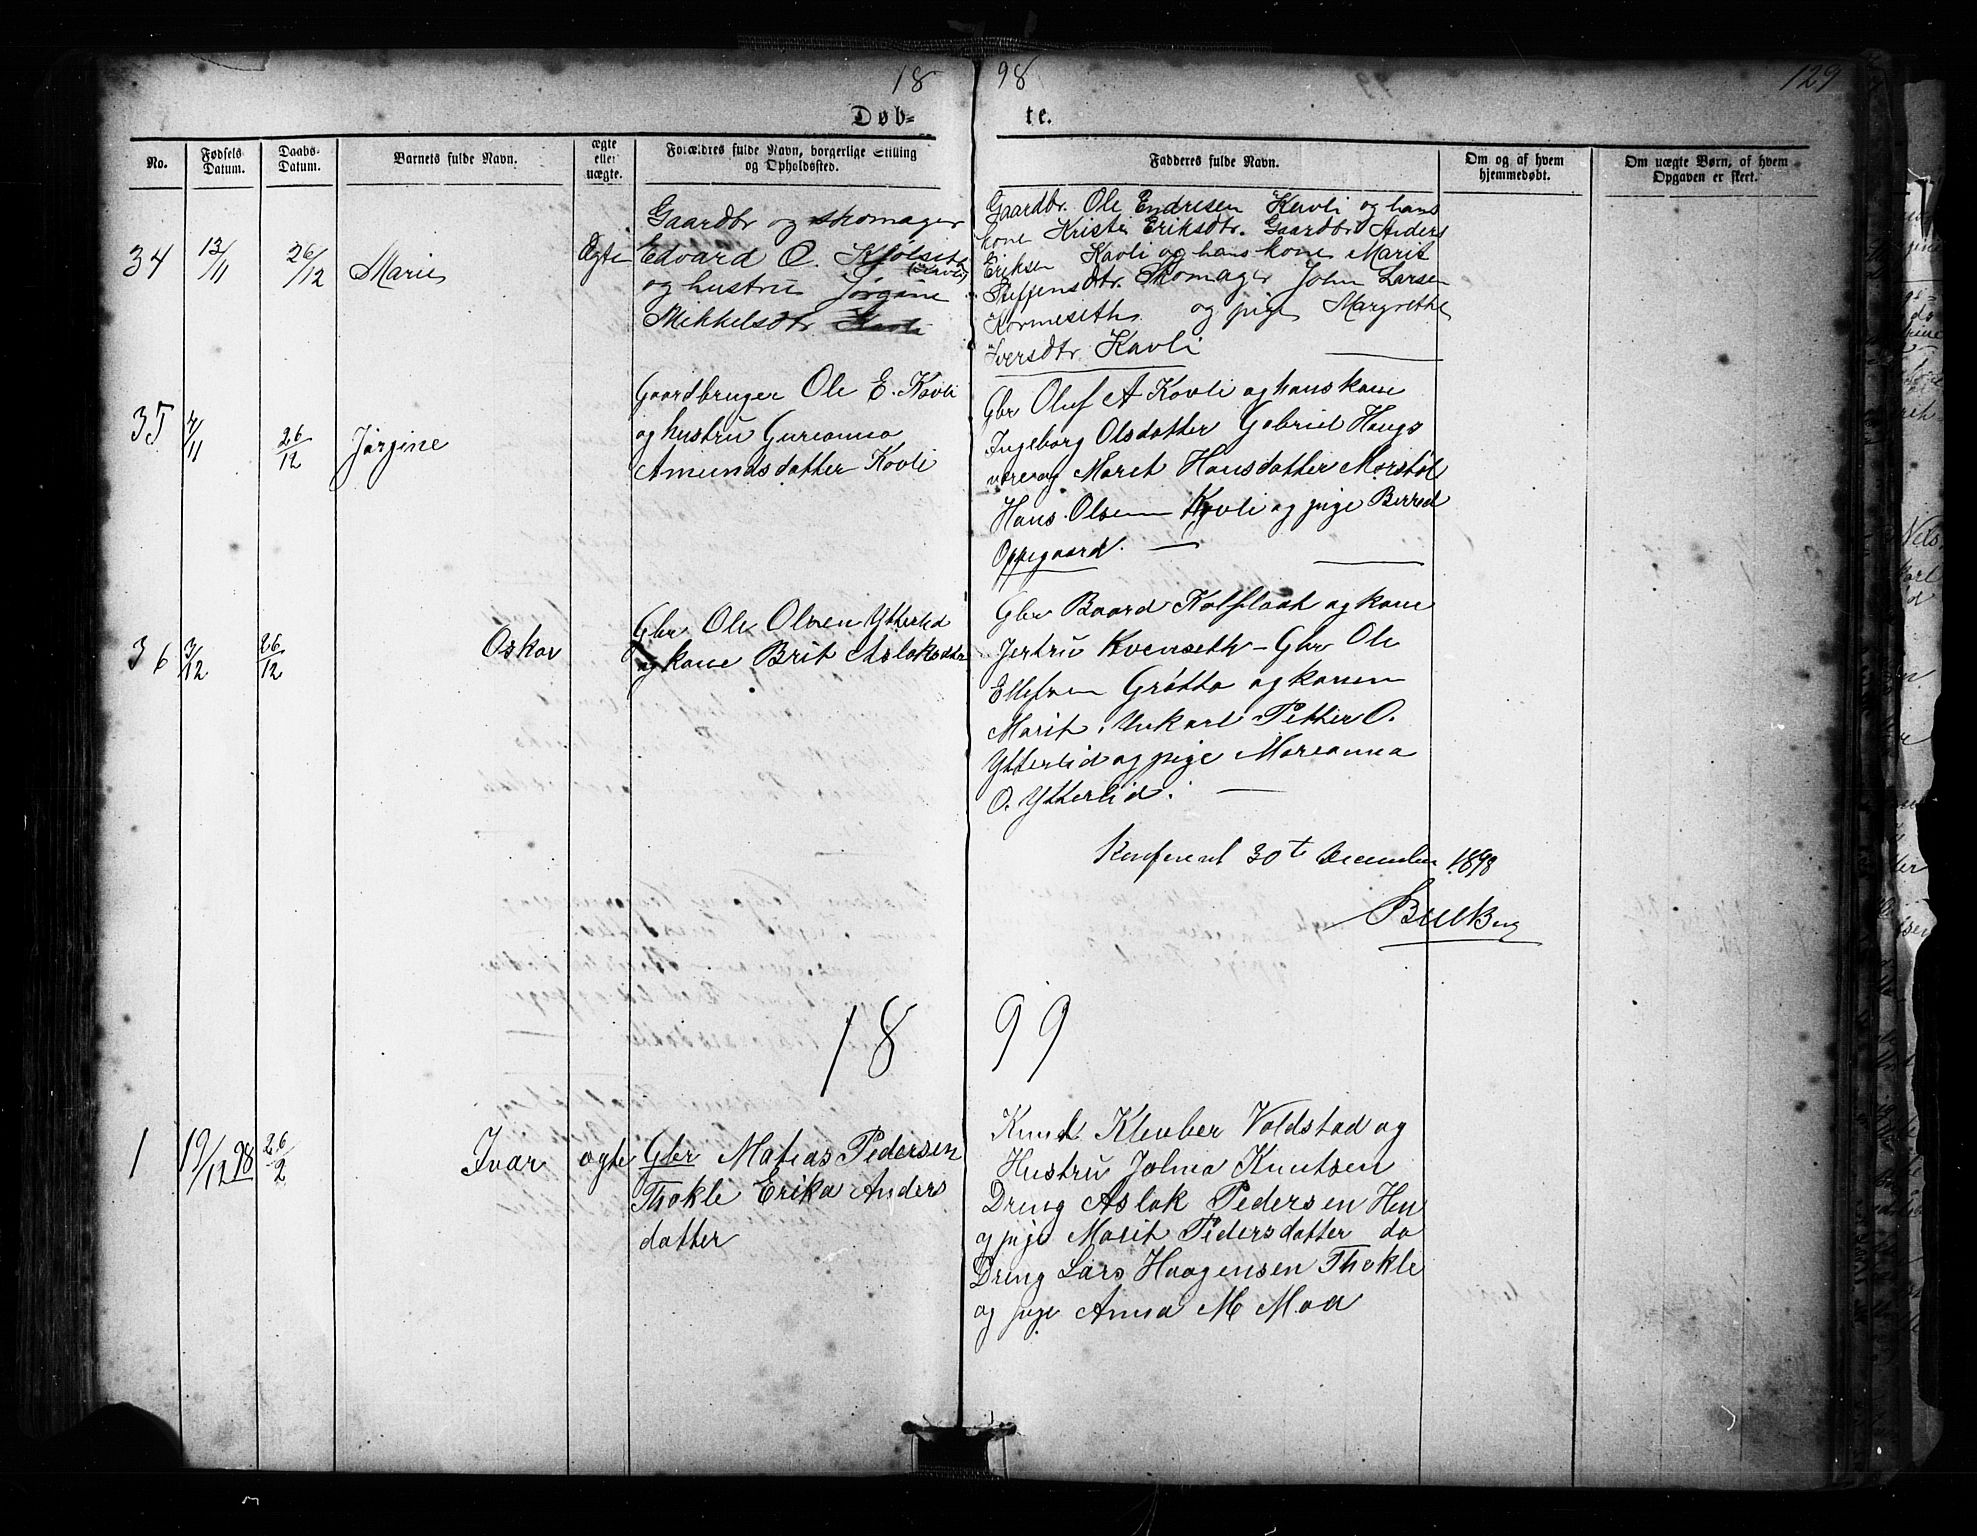 18 98 129
Døb- te.
No. Fødsels Datum. Daabs- Datum. Barnets fulde Navn. ægte eller uægte. Forældres fulde Navn, borgerlige Stilling og Opholdssted. Fadderes fulde Navn. Om og af hvem hjemmedøbt. Om uægte Børn, af hvem Opgaven er skeet.
34 13/11 26/12 Marie Ægte
Gaardbr og skomager
Edvard O.
og hustru Jørgine
Mikkelsdtr
Gaardbr. Ole Endresen Kavli og hans
kone Kristi Eriksdtr. Gaardbr Anders
Eriksen Kavli og hans kone Marit
Steffensdtr. Skomager John Larsen
og pige Margrethe
Iversdtr Kavli
35 4/11 26/12 Jørgine
Gaardbruger Ole E. Kavli
og hustru Gurianna
Amundsdatter Kavli
Gbr Oluf A Kavli og hans kone
Ingeborg Olsdatter Gabriel Hans
Marit Hansdatter
Hans Olsen Kavli og pige Berred
Oppegaard.
36 3/12 26/12 Oskar
Gbr Ole Olsen Ytterlid
og kone Brit Aslaksdtr
Gbr Baard Kalflaat og kone
Jertru Kvenseth - Gbr Ole
Ellefsen Grøtta og konen
Marit. Unkarl Petter O.
Ytterlid og pige Marianna
O. Ytterlid.
Konfereret 30te December 1898
18 99
1 19/12 98 26/2 Ivar ægte
Gbr Matias Pedersen
Thokle Erika Anders
datter
Knud Kleuber Voldstad og
Hustru Jolina Knutsen
Dreng Aslak Pedersen Hen
og pige Marit Pedersdatter do
Dreng Lars Haagensen Thokle
og pige Anna M Moa